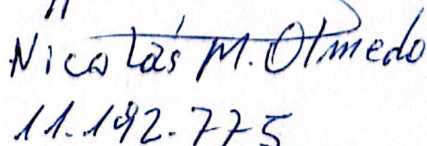 Nicolás M. Olmedo
11.192.775